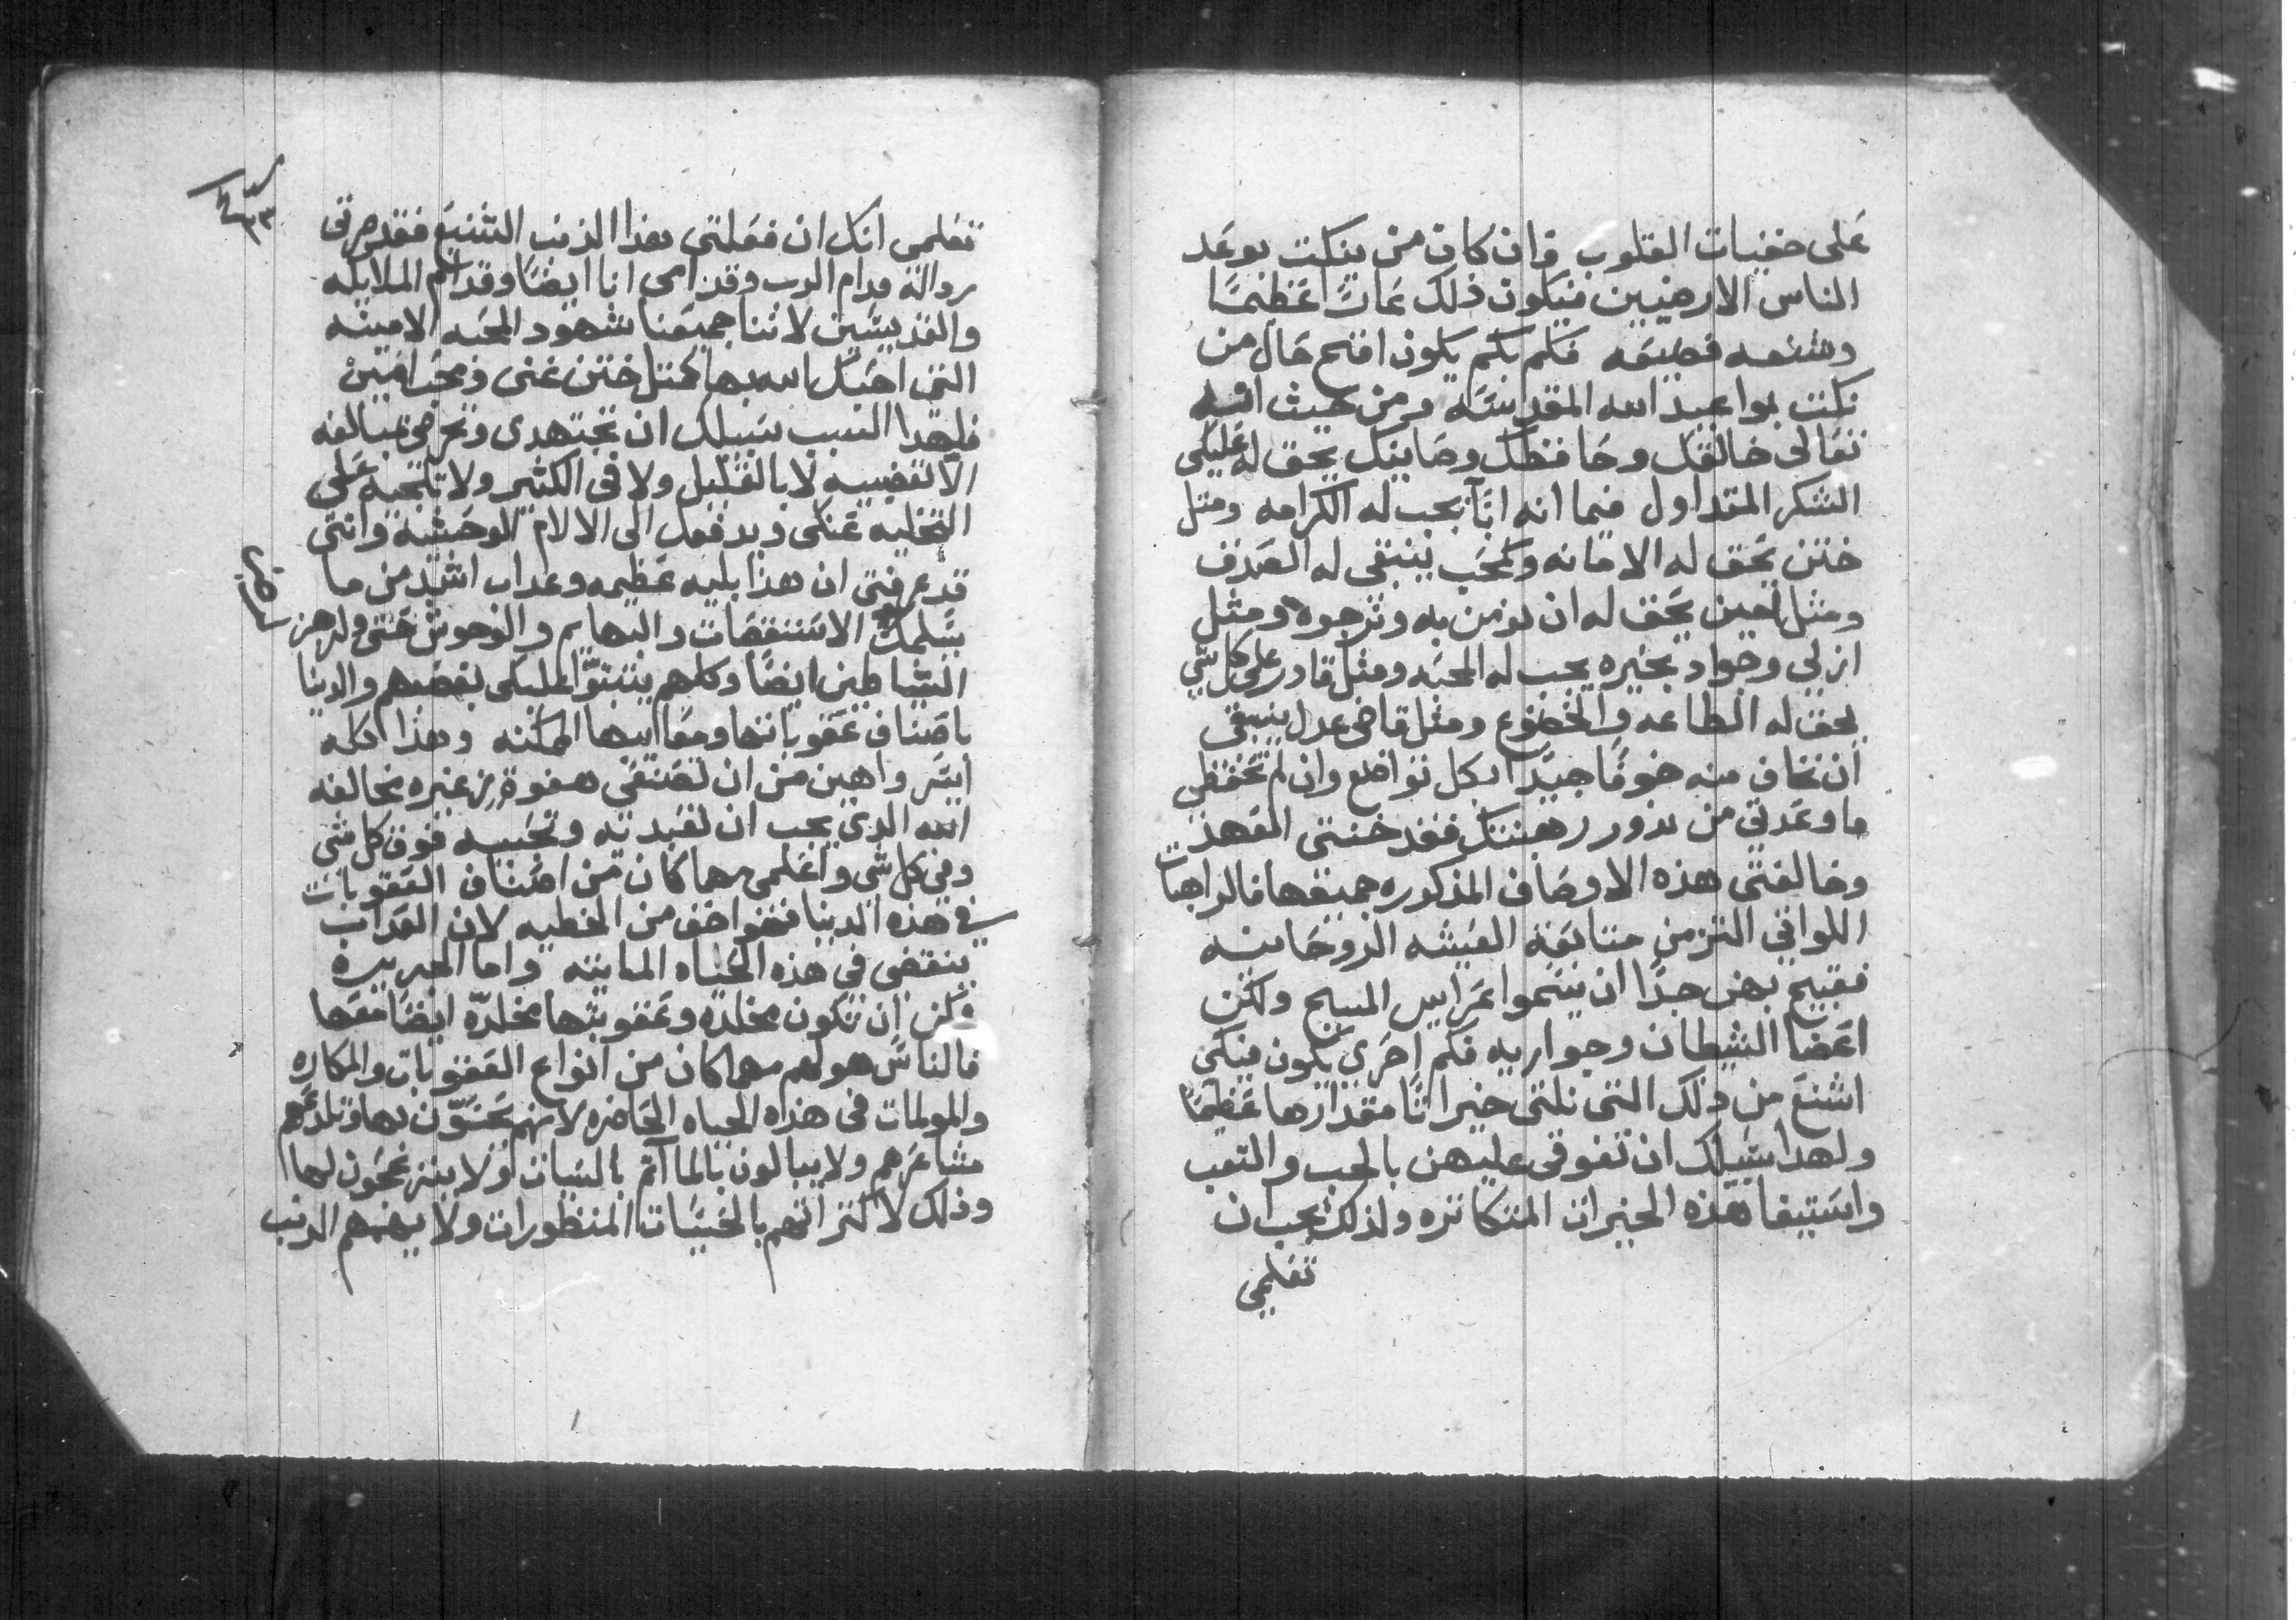 على خفيات القلوب وان كان من ينكت بوعد
الناس الارضيين فيكون ذلك عارًا عظيمًا
وشنعه فضيعه فكم بكم يكون اقبح حال من
نكث بمواعيد الله المقدسه ومن حيث انه
تعالى خالقك وحافظك وصاينك يحق له عليكى
الشكر المتداول فيما انه ابًا يجب له الكرامه ومثل
ختن يحق له الامانه وكمحب ينبغى له الصدق
ومثل امين يحق له ان تومن به وترجوه ومثل
ازلي وجواد بخيره يجب له المحبه ومثل قادر على كل شي
يحق له الطاعه والخضوع ومثل قاضى عدل ينبغى
ان تخاف منه خوفًا جيدًا بكل تواضع وان لم تحفظى
ما وعدتي من ندور رهبنتك فقد خنتى العهد
وخالفتى هذه الاوصاف المذكوره جميعها فالراهبات
اللواتي التزمن متابعة العيشه الروحانيه
فقبيح بهن جدًا ان يسموا عرايس المسيح ولكن
اعضا الشيطان وجواريه فكم احرى يكون منكى
اشنع من ذلك التى نلتى خيراتًا مقدارها عظيمًا
ولهدا سبيلك ان تفوقى عليهن بالحب والتعب
واستيفا هذه الخيرات المتكاتره ولذلك يجب ان
تعلمي
تعلمى انك ان فعلتى هذا الذنب الشنيع فقد صرتى
رداله قدام الرب وقدامى انا ايضًا وقدام الملايكه
والقديسين لاننا جميعنا شهود المحبه الامينه
التى احبك الله بها كمثل ختن غنى ومحب امين
فلهدا السبب سبيلك ان تجتهدى وتحرصى غالفه
الا تغضبيه لا بالقليل ولا فى الكثير ولا تلجيه على
التخليه عنكى ويدفعك الى الالام الوحشيه وانتى
قد عرفتى ان هذا بليه عظيمه وعداب اشد من ما
يسلمك الاستنقصات والبهايم والوحوش حتى ولرهز
الشياطين ايضًا وكلهم يتشبوا عليكى بغضبهم والدنيا
باصناف عقوباتها ومعاايبها الممكنه وهذا كله
ايسر واهين من ان تصنعى هفوة صغيره بمخالفه
الله الذى يجب ان تعبديه وتحبيه فوق كل شي
وفي كل شي واعلمى مهما كان من اصناف العقوبات
في هذه الدينا فهو اخف من الخطيه لان العداب
ينقضى في هذه الحياه المايته واما الجريره
يمكن ان تكون مخلده وعقوبتها مخلدّه ايضًا معها
فالناس هولهم مهما كان من انواع العقوبات والمكاره
والمولمات فى هذاه الحياه الحاضره لانهم يحسّون بها وتلدعهم
مشاعرهم ولا يبالون بالمااتم بالسيات ولا ينزعجون لها
وذلك لاكتراتهم بالحسّيات المنظورات ولا يهمهم الدنب